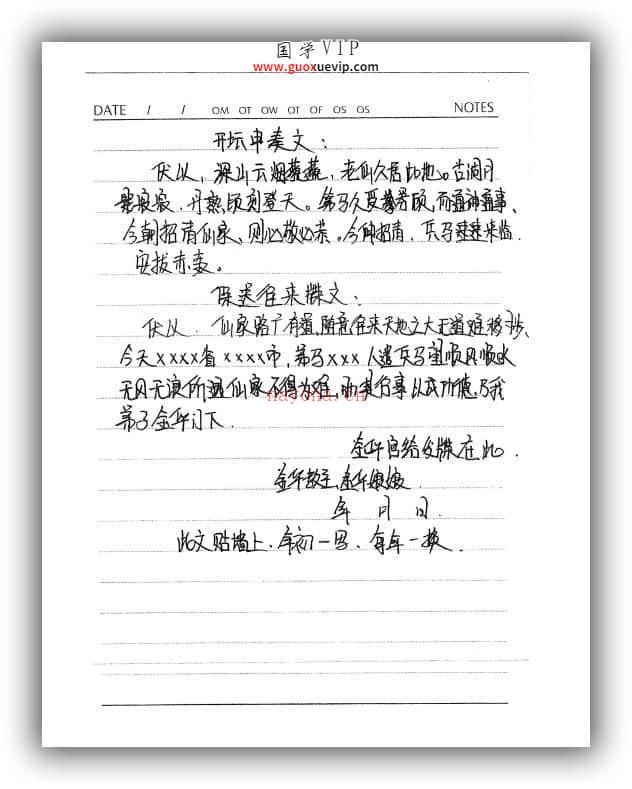 国学VIP
www.guoxuevip.com
DATE / / OM OT OW OT OF OS OS NOTES
开坛申奏文:
伏以,深山云烟蔼蔼,老仙久居此地。古洞月
,丹熟顷刻登天。弟子久受恭芳颜,而通神通事、
今朝招请仙家,则必敬必恭。今时招请,兵马速速来临.
实拔赤奏。
派送往来牒文:
伏以,仙家路广有道,随意往来天地之大无道难移步、
今天xxxx省xxxx市,弟子xxx人遣兵马望顺风顺水
无风无浪所遇仙家不得为难,而是行事以成功德,乃我
弟子金华门下.
nayona.cn
金华宫给发牒在此.
金华教主,金华娘娘.
年 月 日.
此文贴墙上.年初一写.每年一换.